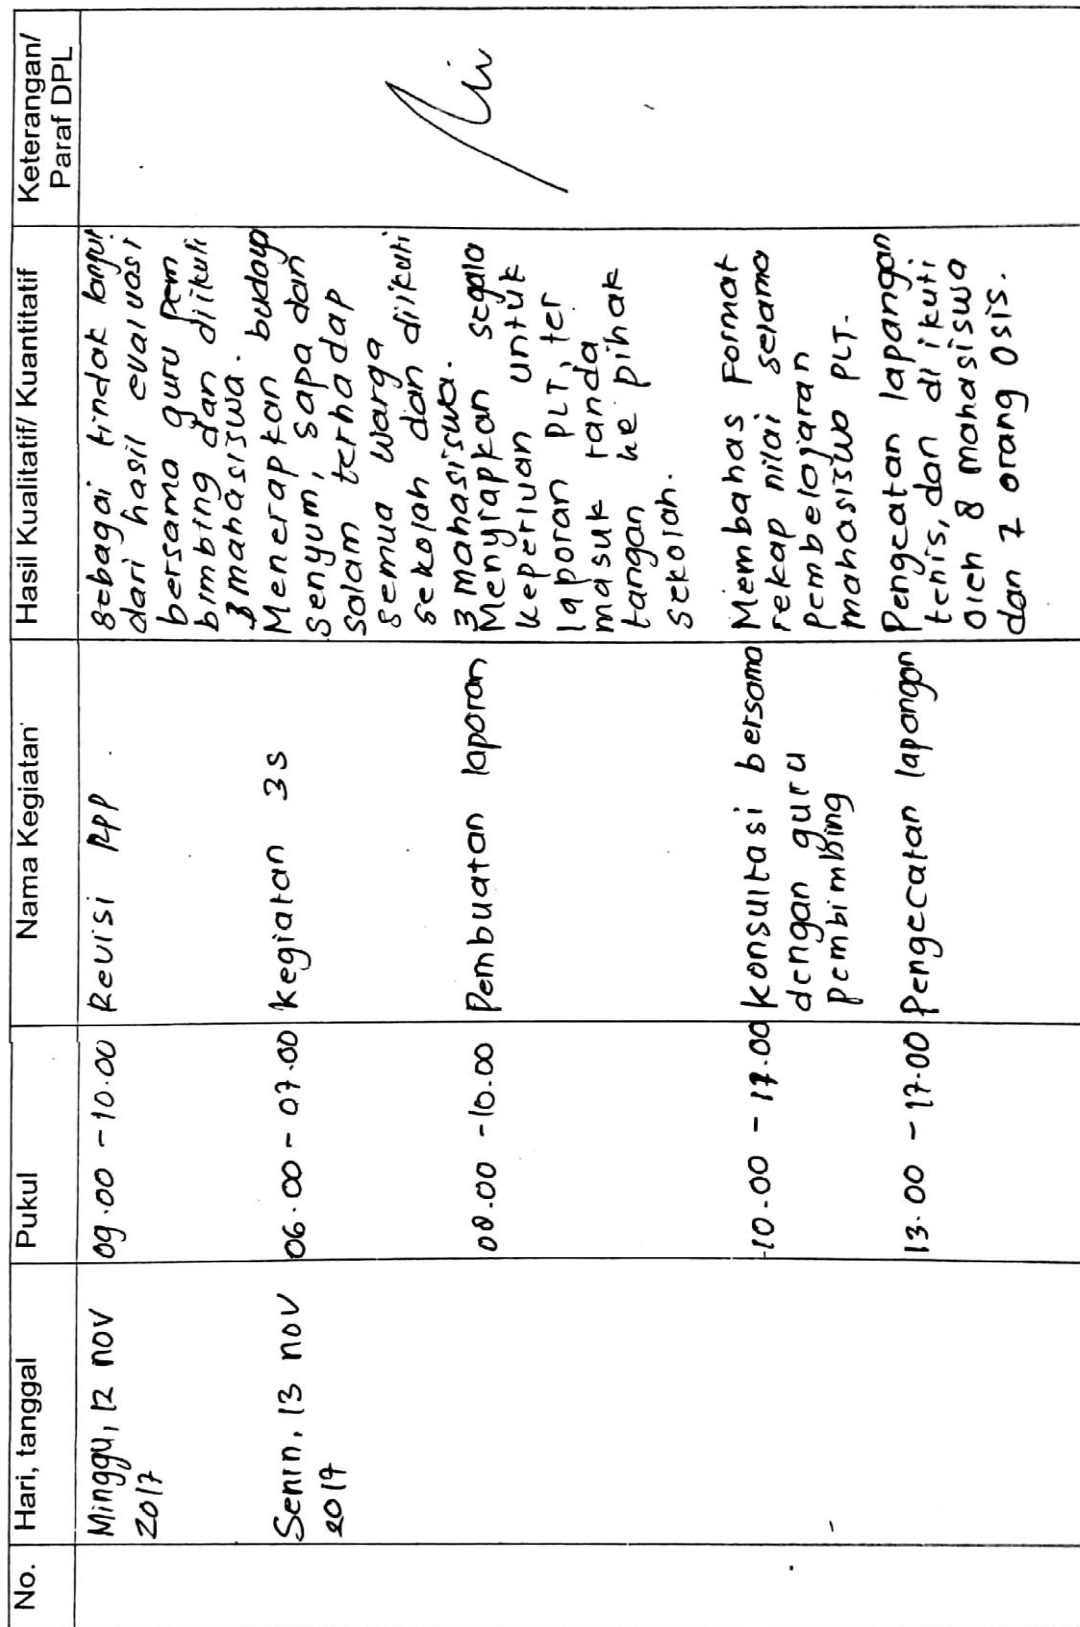 No.
Hari, tanggal
Pukul
Nama Kegiatan
Hasil Kualitatif/ Kuantitatif
Keterangan/
Paraf DPL
Minggu, 12 nov
2017
09.00 - 10.00
Revisi RPP
sebagai tindak lanjut
dari hasil evaluasi
bersama guru pem
bimbing dan diikuti
3 mahasiswa.
Senin, 13 nov
2017
06.00 - 07.00
Kegiatan 3S
Menerapkan budaya
Senyum, sapa dan
Salam terhadap
semua warga
sekolah dan diikuti
3 mahasiswa.
08.00 - 10.00
Pembuatan laporan
Menyiapkan segala
keperluan untuk
laporan PLT, ter
masuk tanda
tangan ke pihak
sekolah.
10.00 - 17.00
Konsultasi bersama
dengan guru
pembimbing
Membahas Format
rekap nilai selama
pembelajaran
mahasiswa PLT.
13.00 - 17.00
Pengecatan lapangan
Pengecatan lapangan
tenis, dan di ikuti
oleh 8 mahasiswa
dan 7 orang Osis.